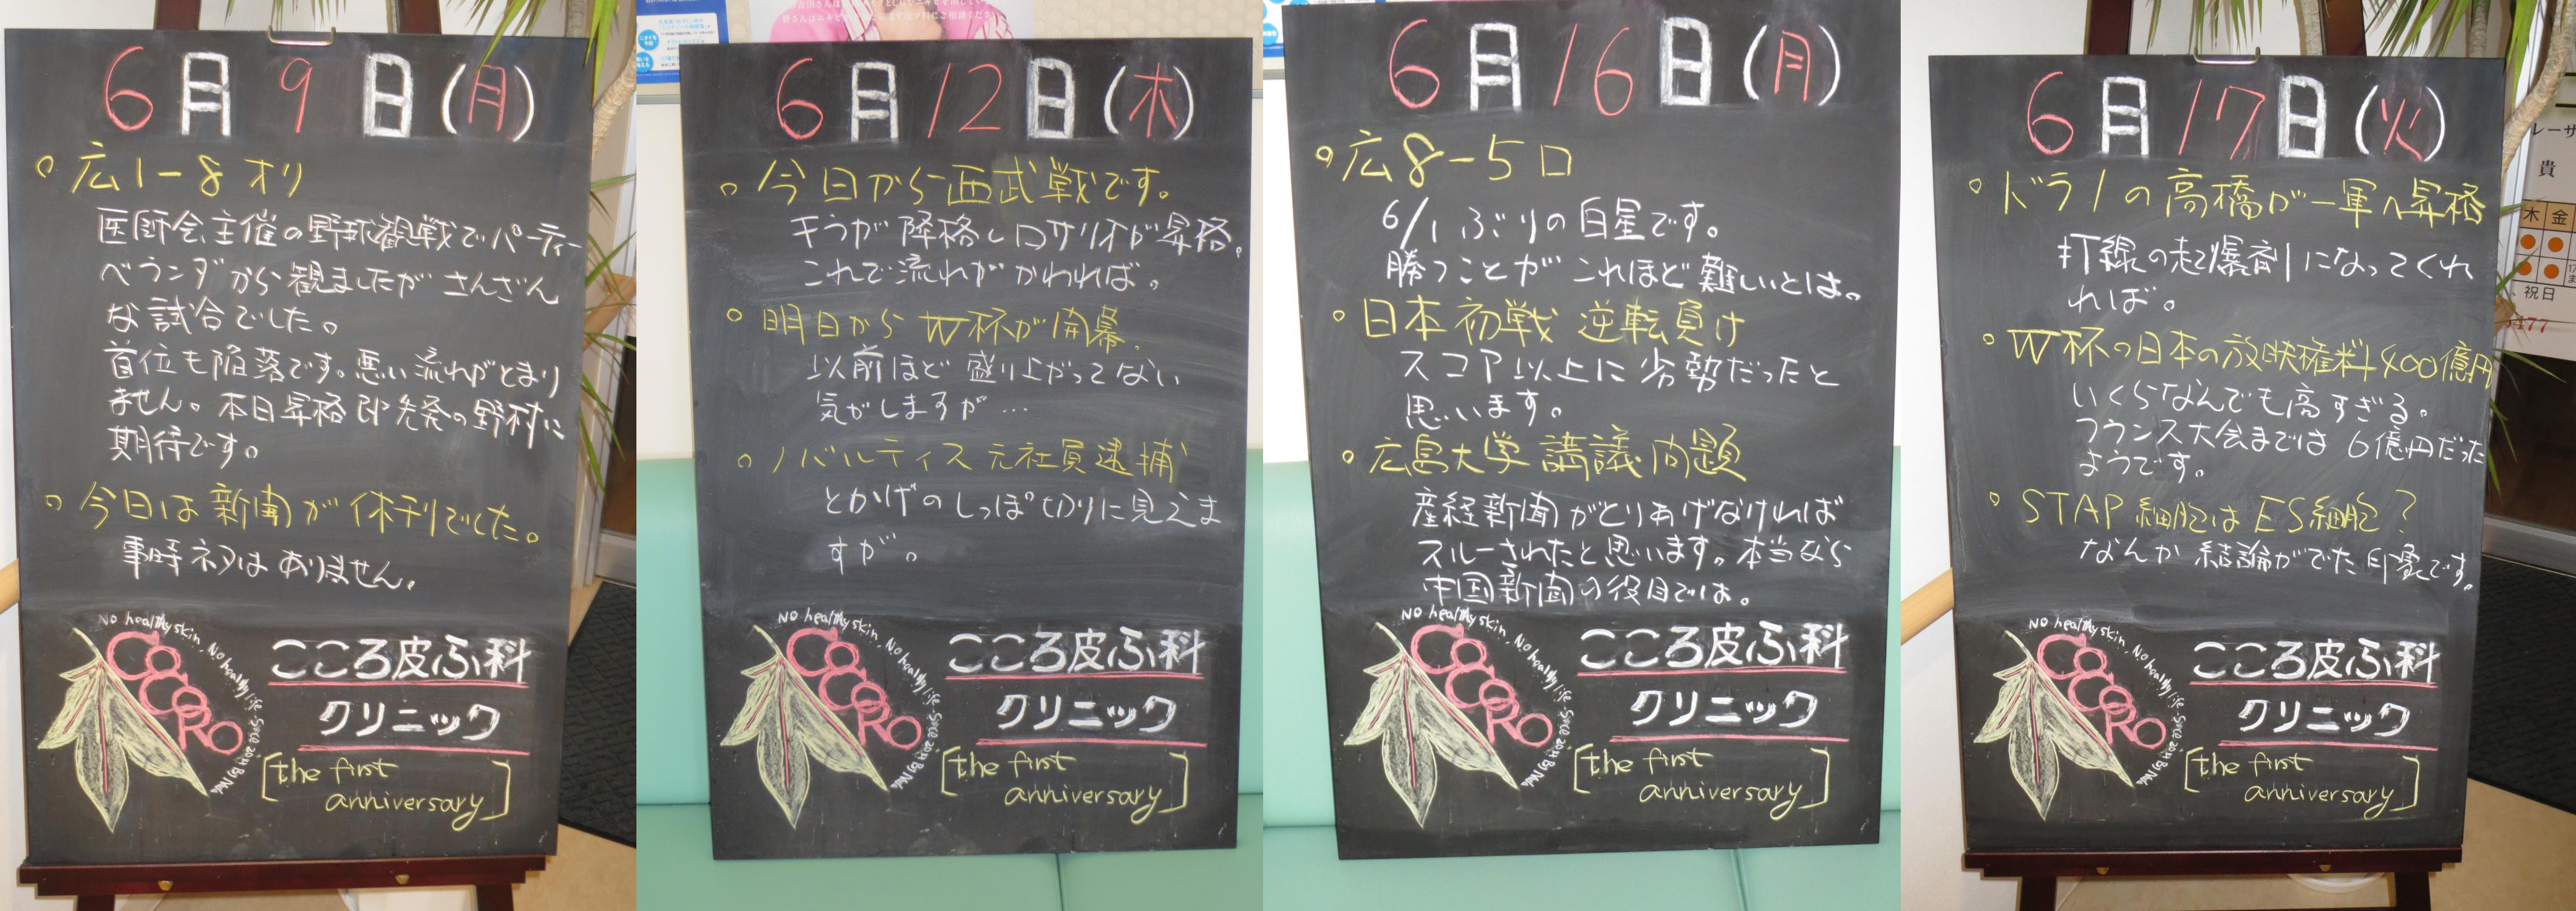 6月9日(月)
。広1-8オリ
医師会主催の野球観戦でパーティー
ベランダから観ましたがさんざん
な試合でした。
首位も陥落です。悪い流れがとまり
ません。本日昇格即先発の野村に
期待です。
。今日は新聞が休刊でした。
事時ネタはありません。
No healthy skin, No healthy life.
CoCoRo
こころ皮ふ科
クリニック
[the first
anniversary]
6月12日(木)
。今日から西武戦です。
キラが降格しロサリオが昇格。
これで流れがかわれば。
。明日からW杯が開幕。
以前ほど盛り上がってない
気がしますが…
。ノバルティス元社員逮捕
とかげのしっぽ切りに見えま
すが。
No healthy skin, No healthy life.
CoCoRo
こころ皮ふ科
クリニック
[the first
anniversary]
6月16日(月)
。広8-5ロ
6/1ぶりの白星です。
勝つことがこれほど難しいとは。
。日本初戦逆転負け
スコア以上に劣勢だったと
思います。
。広島大学講議問題
産経新聞がとりあげなければ
スルーされたと思います。本当なら
中国新聞の役目では。
No healthy skin, No healthy life.
CoCoRo
こころ皮ふ科
クリニック
[the first
anniversary]
6月17日(火)
。ドラ1の高橋が一軍へ昇格
打線の起爆剤になってくれ
れば。
。W杯の日本の放映権料400億円
いくらなんでも高すぎる。
フランス大会までは6億円だった
ようです。
。STAP細胞はES細胞?
なんか結論がでた印象です。
No healthy skin, No healthy life.
CoCoRo
こころ皮ふ科
クリニック
[the first
anniversary]
レーザ
貴
木 金
祝日